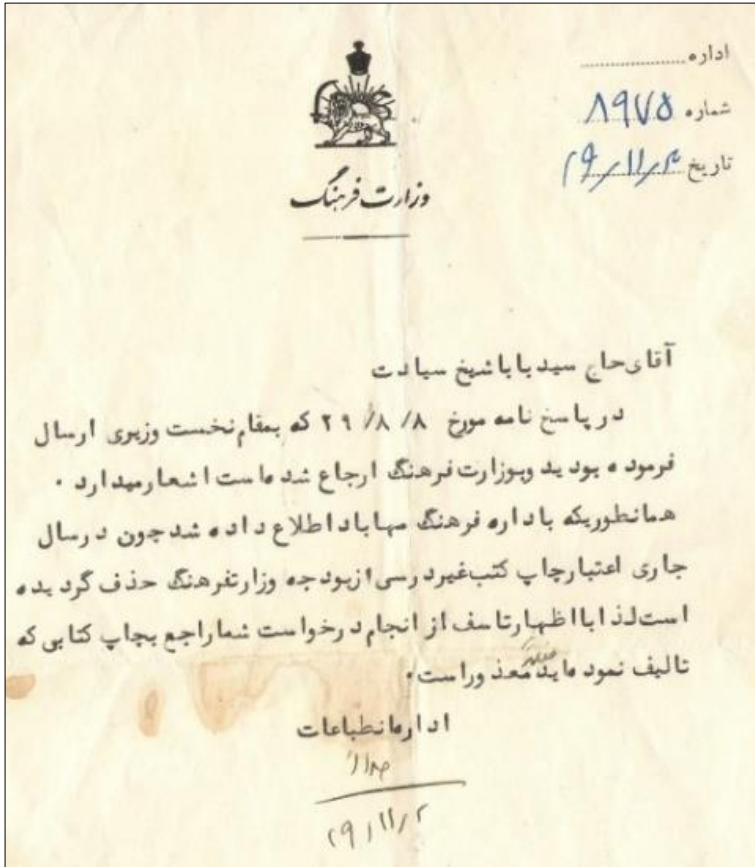 اداره
شماره ۸۹۷۵
تاریخ ۲۹/۱۱/۲
وزارت فرهنگ
آقای حاج سید بابا شیخ سیادت
در پاسخ نامه مورخ ۲۹/۸/۸ که بمقام نخست وزیری ارسال
فرموده بودید وبوزارت فرهنگ ارجاع شده است اشعار میدارد ۰
همانطوریکه باداره فرهنگ مهاباد اطلاع داده شد چون در سال
جاری اعتبار چاپ کتب غیردرسی از بودجه وزارتفرهنگ حذف گردیده
است لذا با اظهار تاسف از انجام درخواست شما راجع بچاپ کتابی که
تالیف نموده اید معذور است۰
اداره انطباعات
۲۹/۱۱/۲